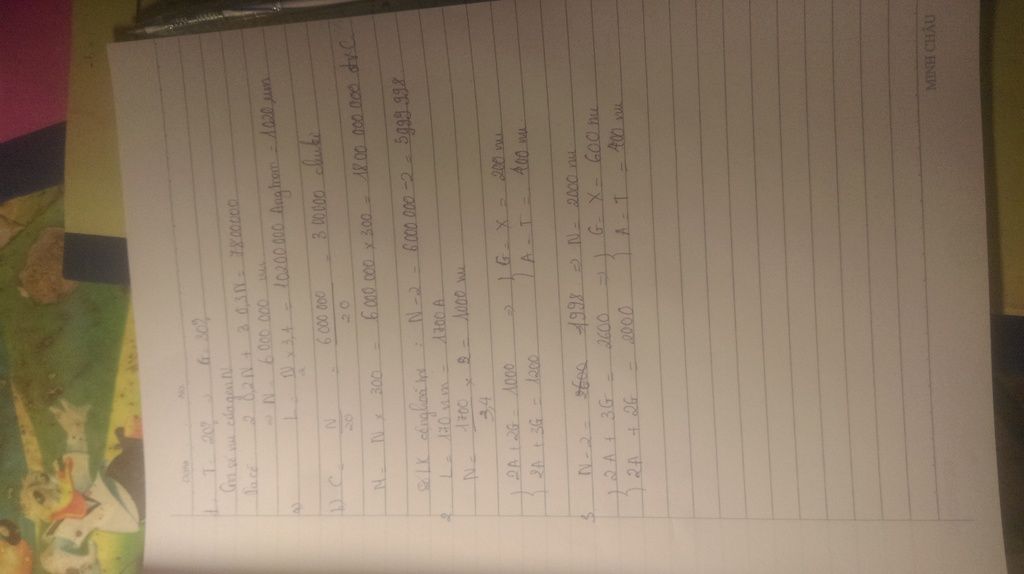 DATE NO.
1. T = 20%, G = 30%
Gọi số nu của gen N
Ta có: 2 . 0,2N + 3 . 0,3N = 7800000
=> N = 6 000 000 nu
a) L = N/2 x 3,4 = 10200 000 Angtrom = 1020 µm
b) C = N/20 = 6 000 000/20 = 300000 chu kì
M = N x 300 = 6 000 000 x 300 = 1800 000 000 đvC
số LK cộng hoá trị : N - 2 = 6 000 000 - 2 = 5999 998
2 L = 170 nm = 1700 A
N = 1700/3,4 x 2 = 1000 nu
{ 2A + 2G = 1000 => { G = X = 200 nu
{ 2A + 3G = 1200 { A = T = 400 nu
3 N - 2 = 1998 => N = 2000 nu
{ 2A + 3G = 2600 => { G = X = 600 nu
{ 2A + 2G = 2000 { A = T = 400 nu
MINH CHÂU